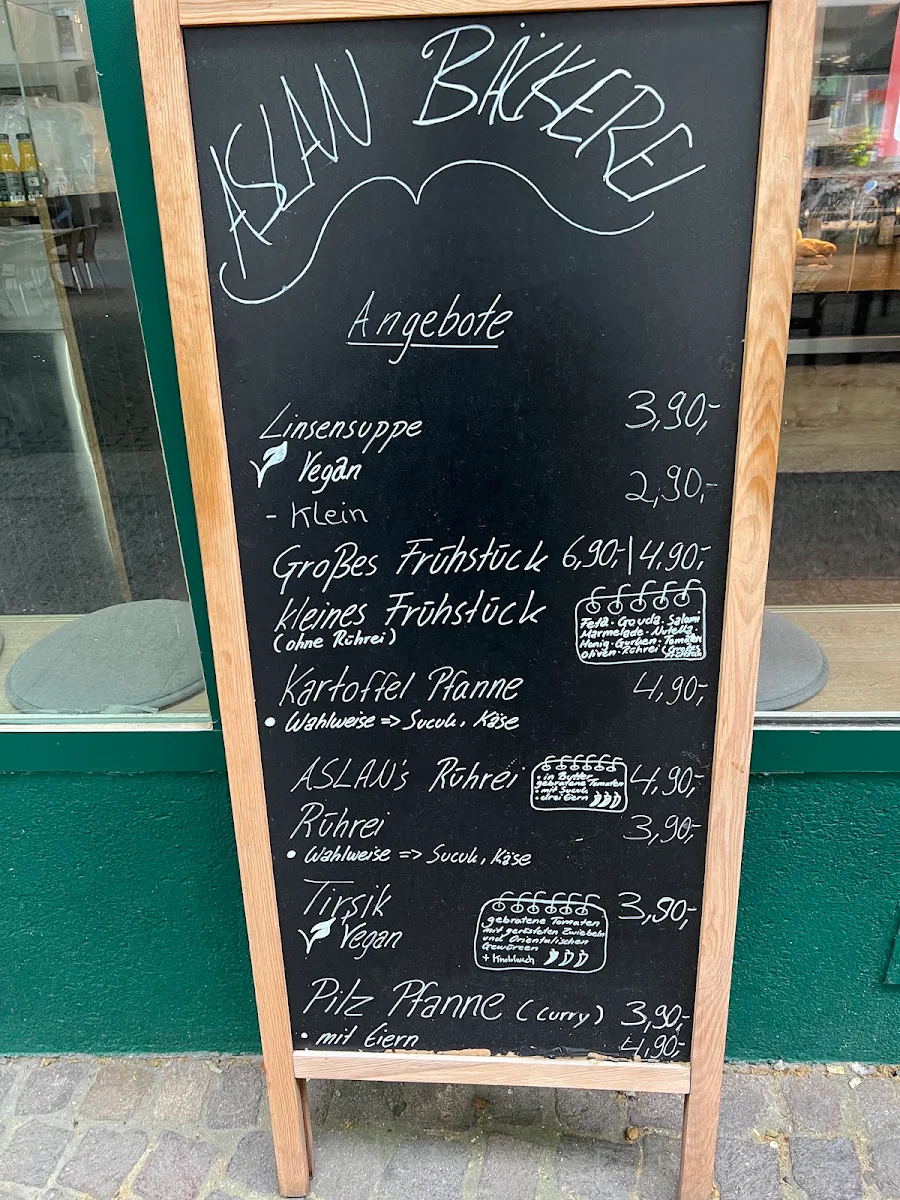 ASLAN BÄCKEREI
Angebote
Linsensuppe 3,90,-
Vegan
- Klein 2,90,-
Großes Frühstück 6,90,-|4,90,-
kleines Frühstück
(ohne Rührei)
Feta · Gouda · Salami
Marmelade · Nutella ·
Honig · Gurken · Tomaten
Oliven · Rührei (Großes
Frühstück
Kartoffel Pfanne 4,90,-
• Wahlweise => Sucuk, Käse
ASLAN's Rührei 4,90,-
• in Butter
gebratene Tomaten
• mit Sucuk
• drei Eiern
Rührei 3,90,-
• Wahlweise => Sucuk, Käse
Tirsik 3,90,-
Vegan
gebratene Tomaten
mit gerösteten Zwiebeln
und Orientalischen
Gewürzen
+ Knoblauch
Pilz Pfanne (Curry) 3,90,-
• mit Eiern 4,90,-